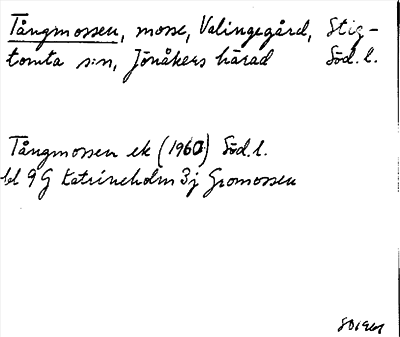 Tångmossen, mosse, Valingegård, Stig-
tomta s:n, Jönåkers härad Söd.l.
Tångmossen ek (1960) Söd.l.
bl 9G Katrineholm 3j Gromossen